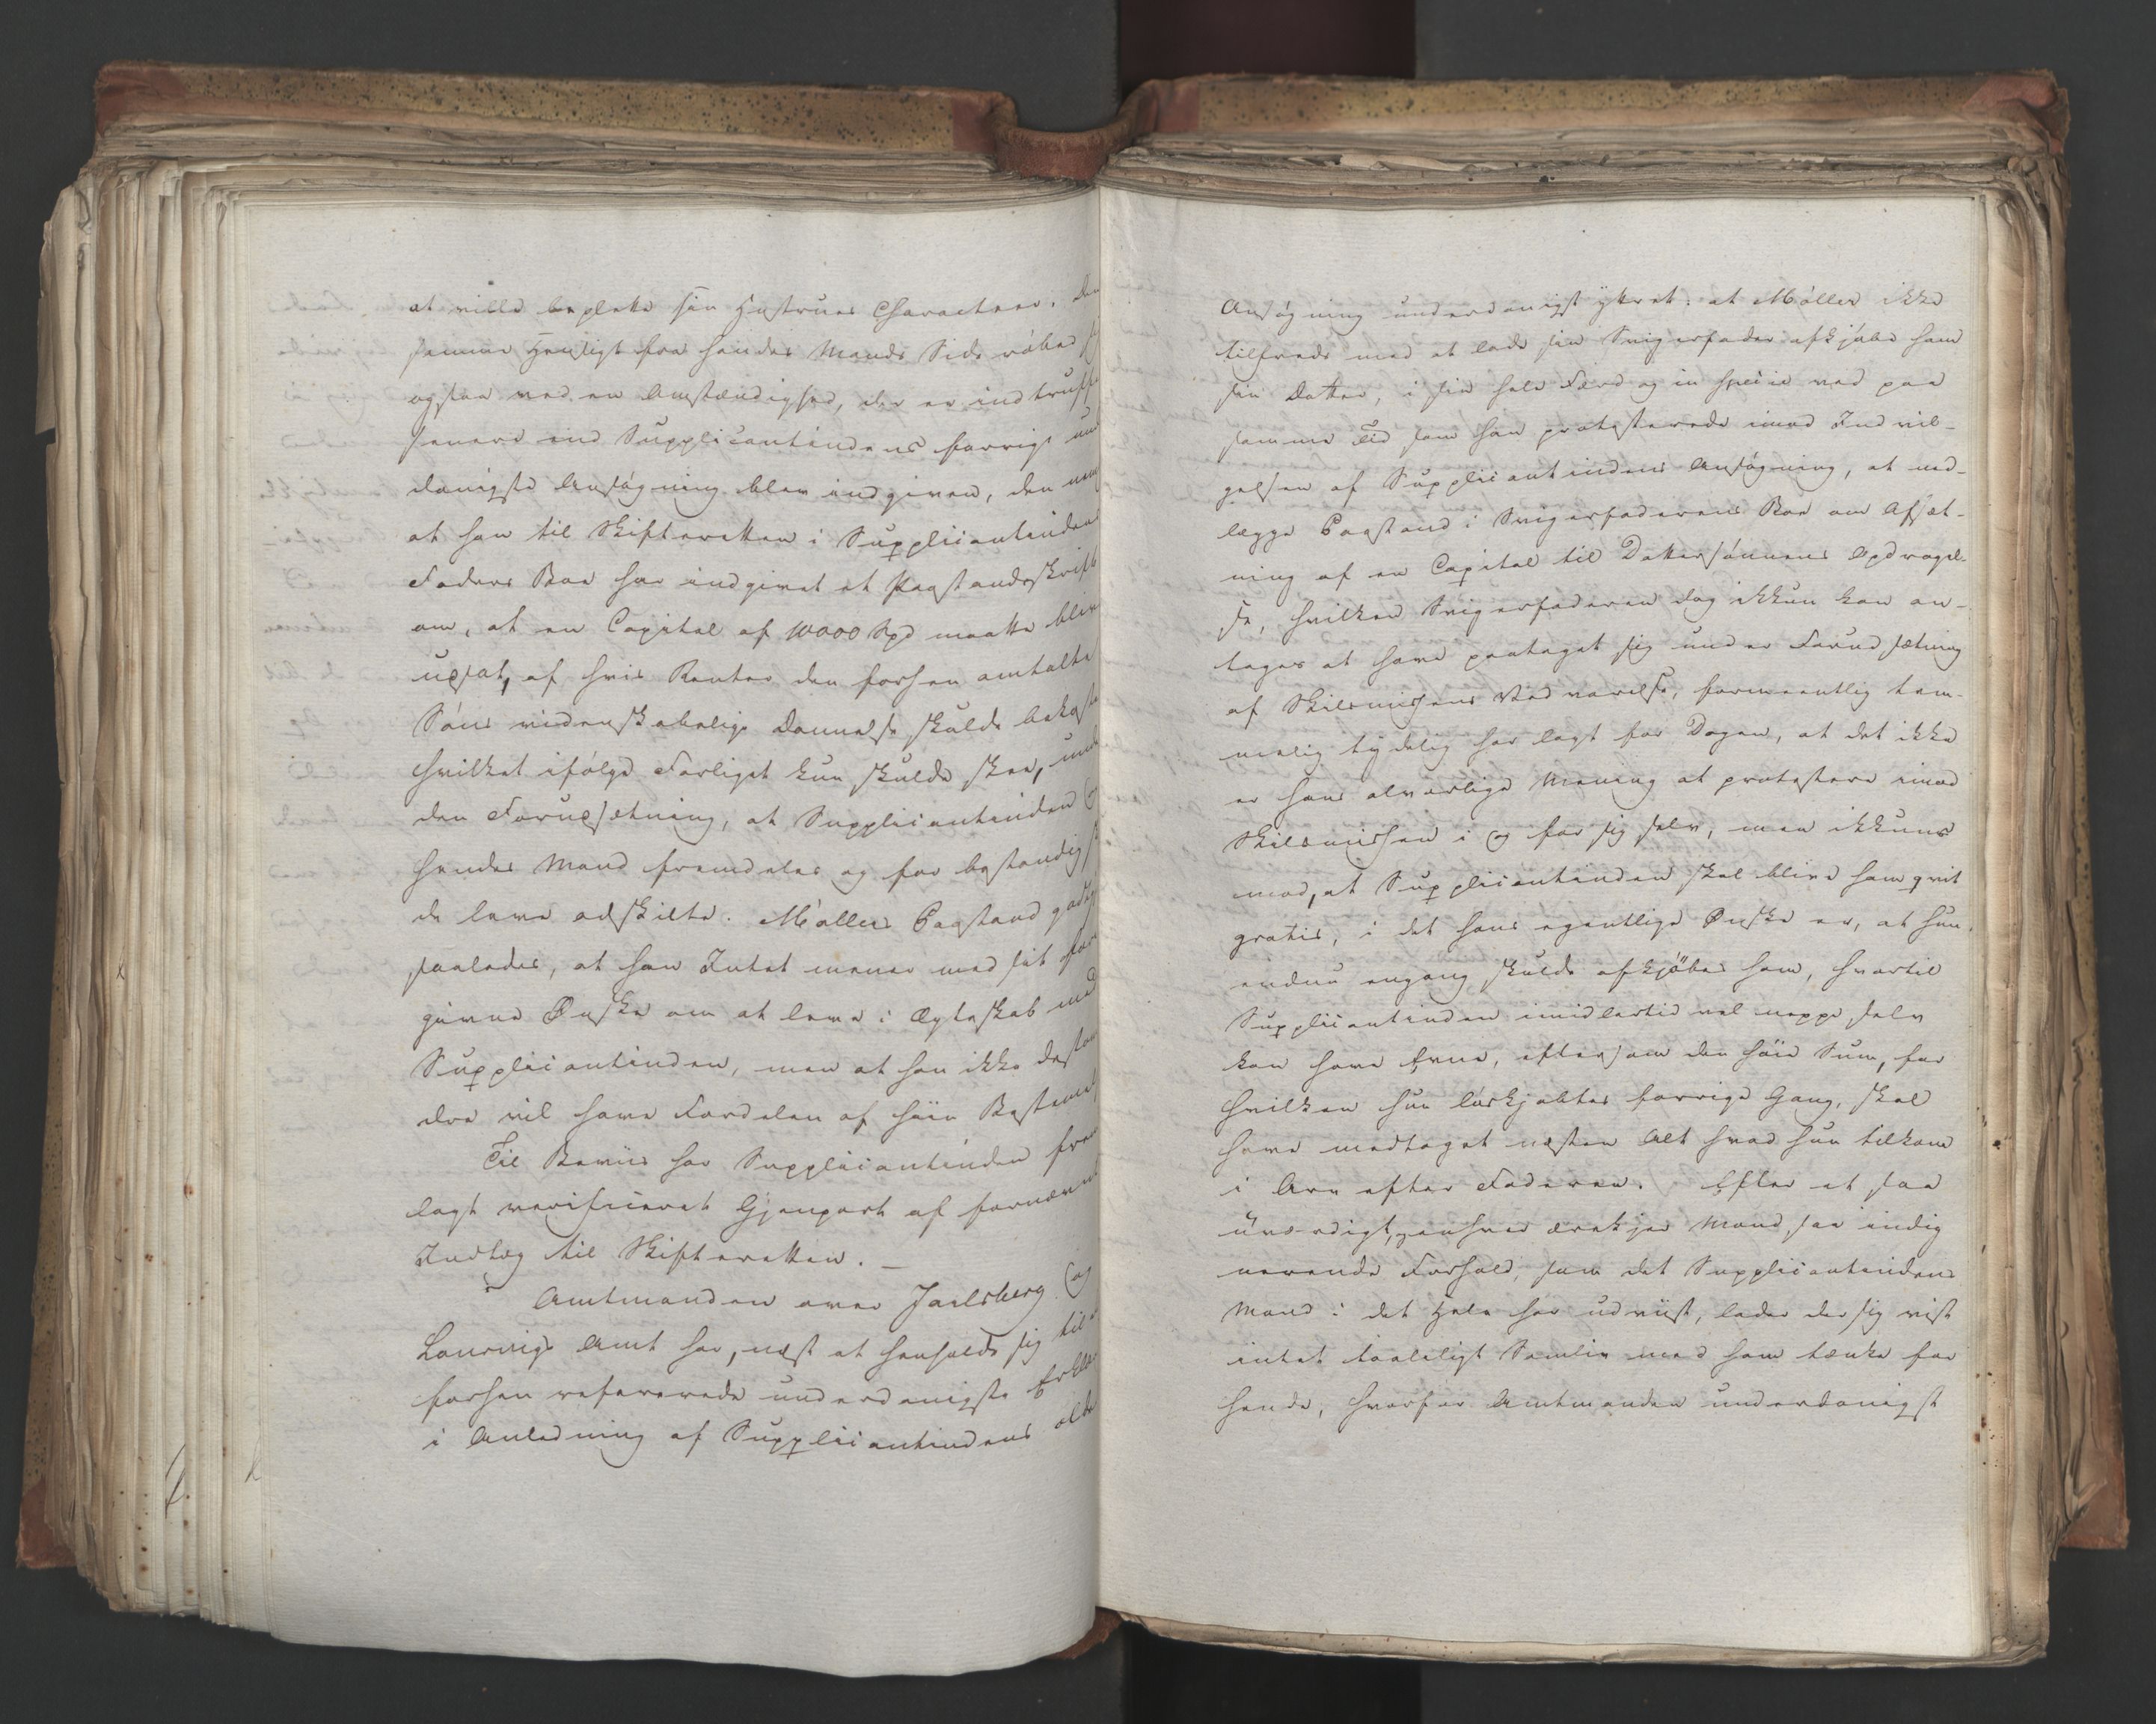 at ville beplette sin Hustrues Characteer. Den
samme Hensigt fra hendes Mands Side røber sig
ogsaa ved en Omstændighed, der er indtruff
senere end Supplicantindens forrige und
danigste Ansøgning blev indgiven, den nem
at han til Skifteretten i Supplicantindens
Faders Boe har indgivet et Paastandsskrift
om, at en Capital af 10000 Spd maatte bliv
udsat, af hvis Renter den forhen omtalte
Søns videnskabelige Dannelse skulde bekoste
hvilket ifølge Forliget kun skulde skee, unde
den Forudsetning, at Supplicantinden og
hendes Mand fremdeles og for bestandig
de leve adskilte. Møllers Paastand godtg
saaledes, at han Intet mener med sit fore
givne Ønske om at leve i Ægteskab med
Supplicantinden, men at han ikke desto
dre vil have Fordelen af hiin Bestemm
Til Beviis har Supplicantinden frem
lagt verificeret Gjenpart af fornævnte
Indlæg til Skifteretten. –
Amtmanden over Jarlsberg og
Laurvigs Amt har, næst at henholde sig til
forhen refererede underdanigste Erklæ
i Anledning af Supplicantindens ældre
Ansøgning underdanigst yttret: at Møller ikke
tilfreds med at lade sin Svigerfader afkjøbe ham
sin Datter, i sin hele Færd og in specie ved paa
samme Tid som han protesterede imod Indvil-
gelsen af Supplicantindens Ansøgning, at ned-
lægge Paastand i Svigerfaderens Boe om Afsæt-
ning af en Capital til Dattersønnens Opdragel-
se, hvilken Svigerfaderen dog ikkun kan an-
tages at have paataget sig under Forudsætning
af Skilsmissens Vedvarelse, formeentlig tem-
melig tydelig har lagt for Dagen, at det ikke
er hans alvorlige Mening at protestere imod
Skilsmissen i og for sig selv, men ikkuns
mod, at Supplicantinden skal blive ham qvit
gratis, i det hans egentlige Ønske er, at hun
endnu engang skulde afkjøbes ham, hvortil
Supplicantinden imidlertid vel neppe selv
kan have Evne, eftersom den høie Sum, for
hvilken hun løskjøbtes forrige Gang, skal
have medtaget næsten Alt hvad hun tilkom
i Arv efter Faderen. Efter et saa
uværdigt, enhver ærekjer Mand saa indig
nerende Forhold, som det Supplicantindens
Mand i det Hele har udviist, lader der sig vist
intet taaleligt Samliv med ham tænke for
hende, hvorfor Amtmanden underdanigst